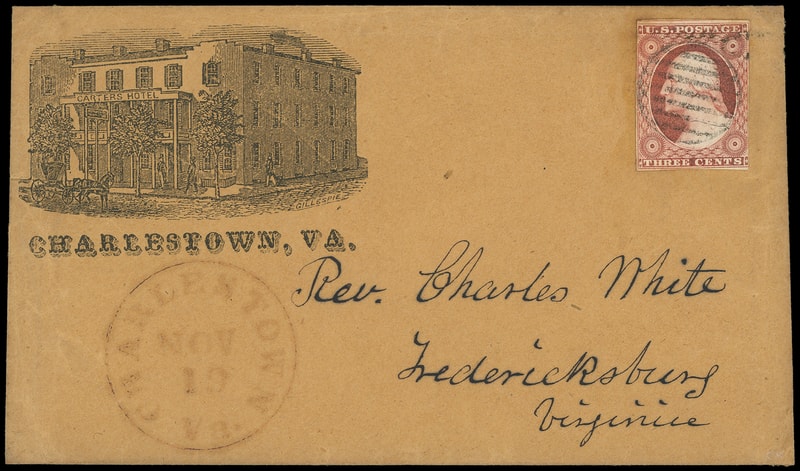 CARTERS HOTEL
GILLESPIE
CHARLESTOWN, VA.
U.S. POSTAGE
THREE CENTS
Rev. Charles White
Fredericksburg
Virginia
CHARLESTOWN
NOV
Va.